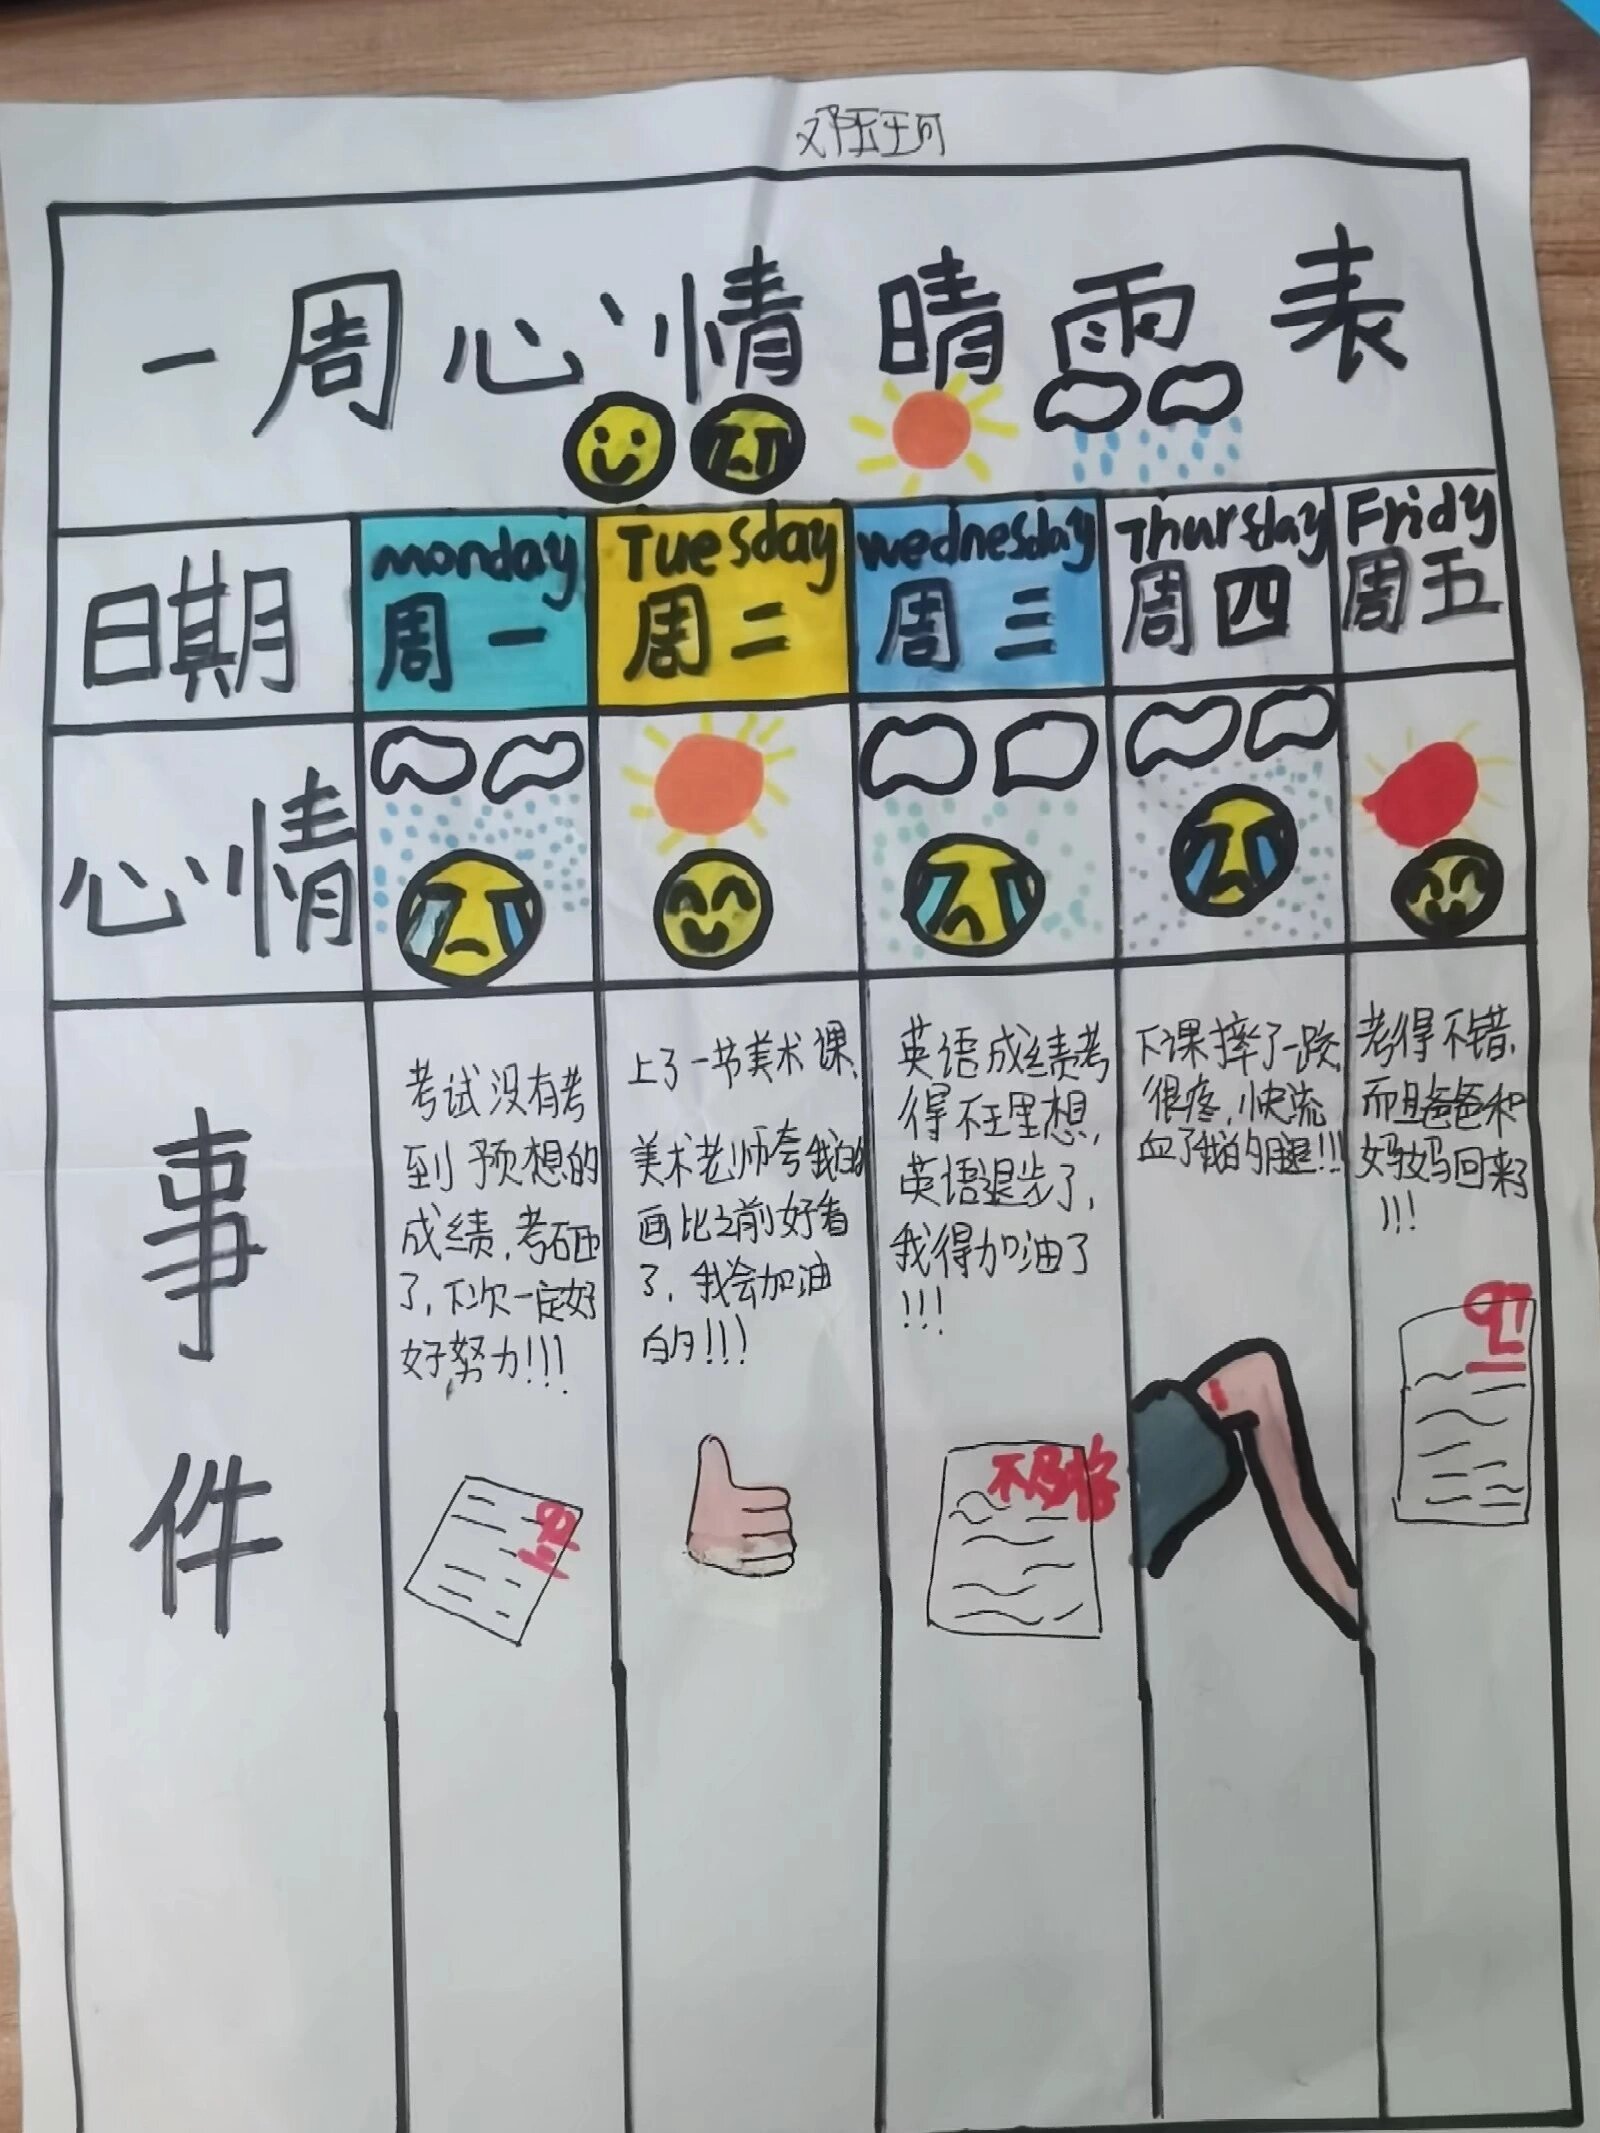 一周心情晴雨表
日期
monday
周一
Tuesday
周二
wednesday
周三
Thursday
周四
Fridy
周五
心情
事件
考试没有考
到预想的
成绩,考砸
了,下次一定好
好努力!!!
上了一节美术课,
美术老师夸我的
画比之前好看
了,我会加油
的!!!
英语成绩考
得不理想,
英语退步了,
我得加油了
!!!
不及格
下课摔了一跤,
很疼,快流
血了我的腿!!!
考得不错,
而且爸爸和
妈妈回来了
!!!